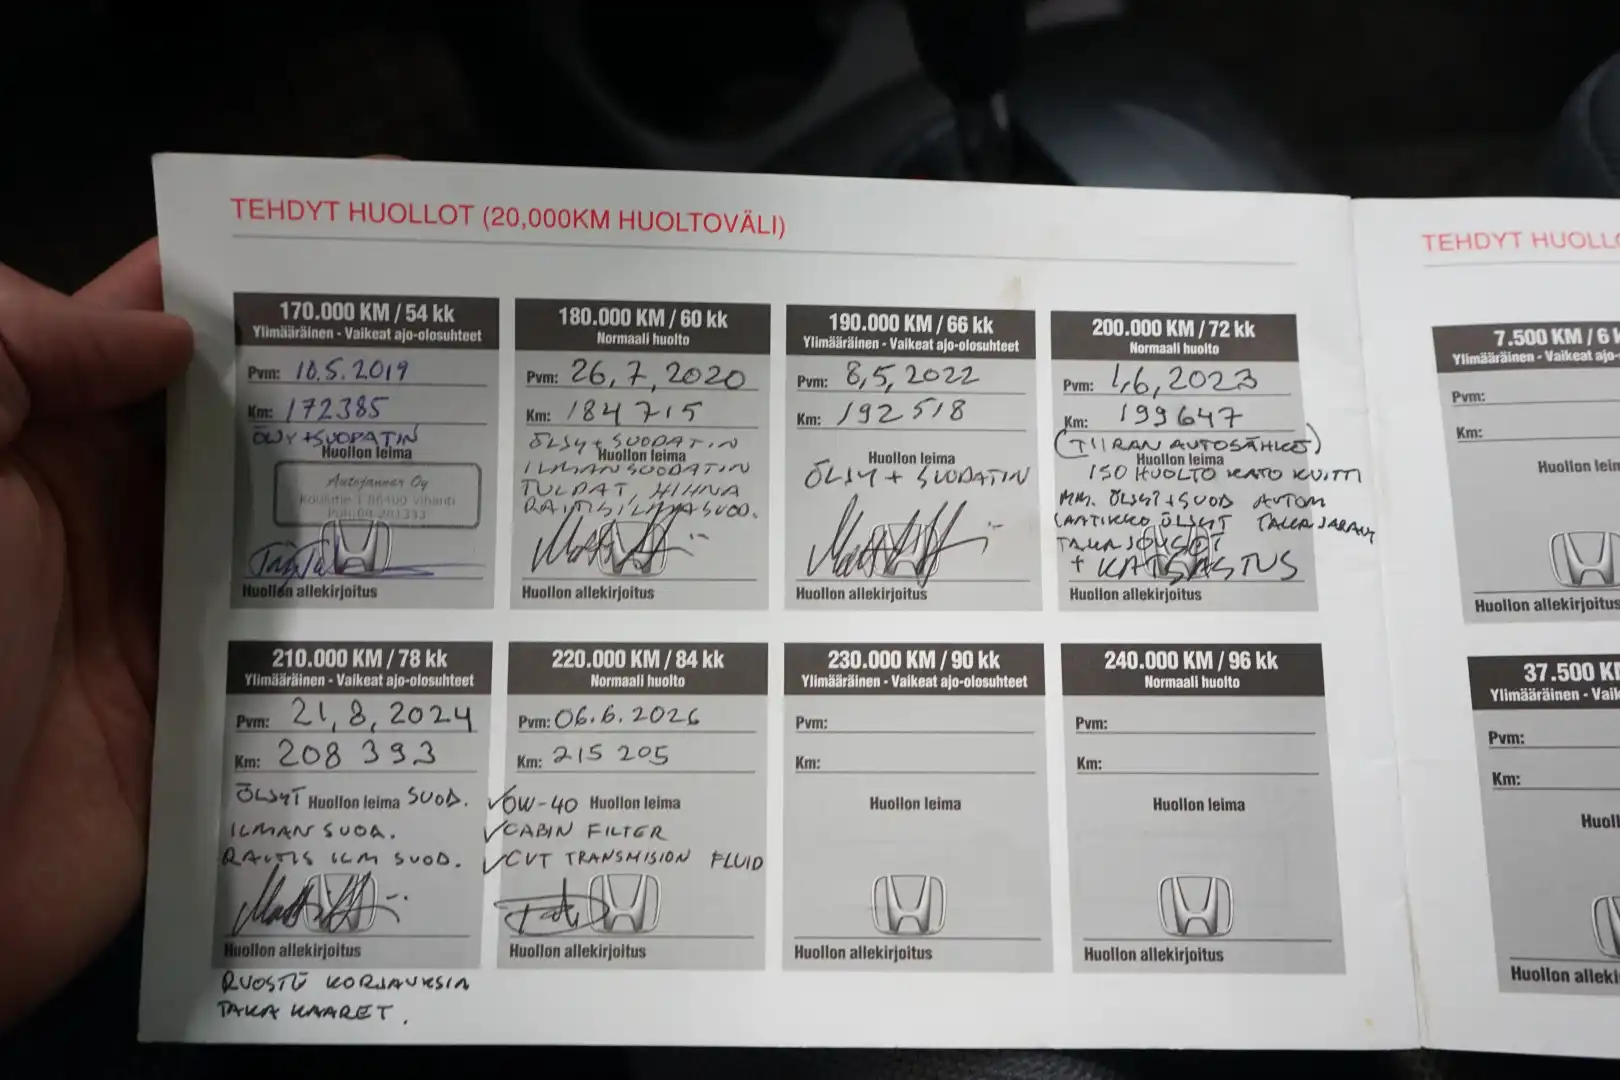 TEHDYT HUOLLOT (20,000KM HUOLTOVÄLI)
170.000 KM / 54 kk
Ylimääräinen - Vaikeat ajo-olosuhteet
Pvm: 10.5.2019
Km: 172385
ÖLJY+SUODATIN
Huollon leima
Autojannar Oy
86400 Vihanti
Huollon allekirjoitus
180.000 KM / 60 kk
Normaali huolto
Pvm: 26,7,2020
Km: 184715
ÖLJY+SUODATIN
Huollon leima
ILMANSUODATIN
TULPAT, HIHNA
RAITISILMASUOD.
Huollon allekirjoitus
190.000 KM / 66 kk
Ylimääräinen - Vaikeat ajo-olosuhteet
Pvm: 8,5,2022
Km: 192518
Huollon leima
ÖLJY + SUODATIN
Huollon allekirjoitus
200.000 KM / 72 kk
Normaali huolto
Pvm: 1,6,2023
Km: 199647
(TIIRAN AUTOSÄHKÖ)
Huollon leima
ISO HUOLTO KATO KUITTI
MM. ÖLJYT+SUOD AUTOM
LAATIKKO ÖLJYT TAKAJARRUT
TAKAJOUSET
+ KATSASTUS
Huollon allekirjoitus
210.000 KM / 78 kk
Ylimääräinen - Vaikeat ajo-olosuhteet
Pvm: 21,8,2024
Km: 208 393
ÖLJYT Huollon leima SUOD.
ILMAN SUOD.
RAITIS ILM SUOD.
Huollon allekirjoitus
RUOSTE KORJAUKSIA
TAKA KAARET.
220.000 KM / 84 kk
Normaali huolto
Pvm: 06.6.2026
Km: 215 205
✓0W-40 Huollon leima
✓CABIN FILTER
✓CVT TRANSMISION FLUID
Huollon allekirjoitus
230.000 KM / 90 kk
Ylimääräinen - Vaikeat ajo-olosuhteet
Pvm:
Km:
Huollon leima
Huollon allekirjoitus
240.000 KM / 96 kk
Normaali huolto
Pvm:
Km:
Huollon leima
Huollon allekirjoitus
TEHDYT HUOLLO
7.500 KM / 6 k
Ylimääräinen - Vaikeat ajo-
Pvm:
Km:
Huollon leim
Huollon allekirjoitus
37.500 KM
Ylimääräinen - Vaik
Pvm:
Km:
Huoll
Huollon alleki